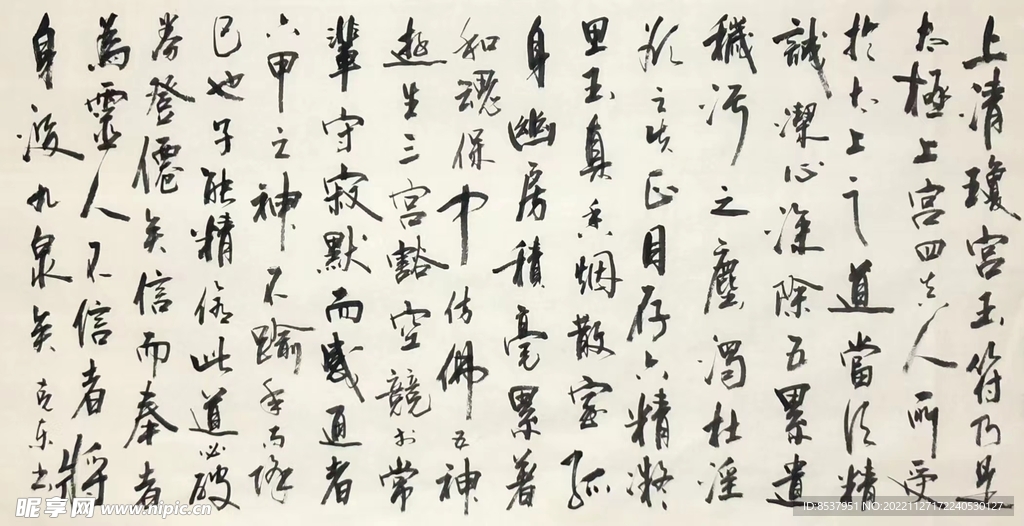 上清瓊宫玉符乃是
太極上宫四真人所受
於太上之道當須精
誠潔心澡除五累遺
穢污之塵濁杜淫
欲之失正目存六精凝
思玉真香烟散室孤
身幽房積毫累著
和魂保中仿佛五神
遊生三宫豁空競於常
輩守寂默而感通者
六甲之神不踰年而降
已也子能精脩此道必破
券登僊矣信而奉者
為靈人不信者將
身没九泉矣 克东书
昵享网 www.nipic.cn
ID:8537951 NO:20221127172240530127